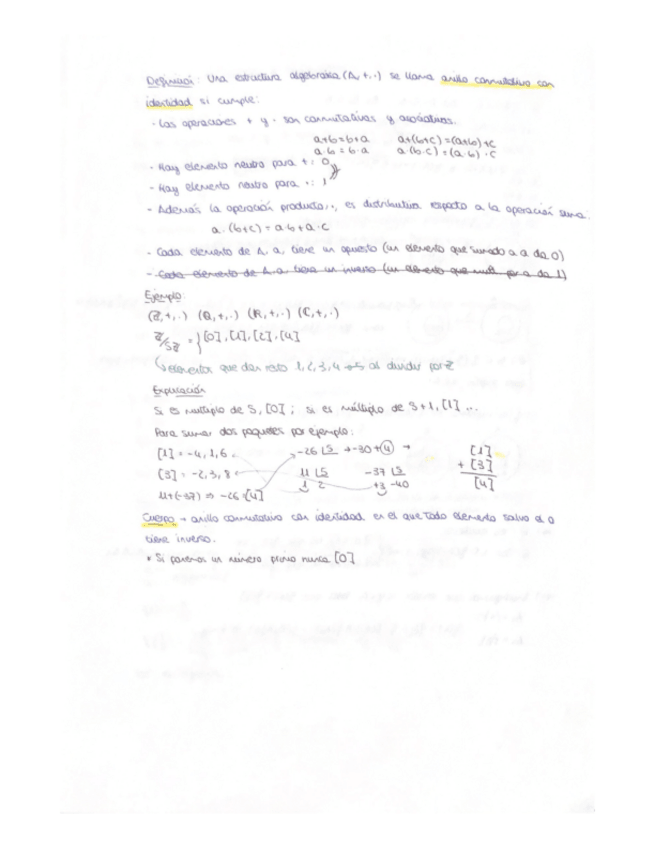 Definición: Una estructura algebraica (A, +, ·) se llama anillo conmutativo con
identidad si cumple:
· Las operaciones + y · son conmutativas y asociativas.
a+b=b+a a+(b+c)=(a+b)+c
a·b=b·a a·(b·c)=(a·b)·c
- Hay elemento neutro para +: 0
- Hay elemento neutro para ·: 1
- Además la operación producto, ·, es distributiva respecto a la operación suma:
a·(b+c)=a·b+a·c
- Cada elemento de A, a, tiene un opuesto (un elemento que sumado a a da 0)
- Cada elemento de A, a, tiene un inverso (un elemento que mult. por a da 1)
Ejemplo:
(Z,+,·) (Q,+,·) (R,+,·) (C,+,·)
Z/5Z = {[0],[1],[2],[4]
elementos que dan resto 1,2,3,4 al dividir por
Explicación
Si es multiplo de 5, [0]; si es múltiplo de 5+1, [1] ...
Para sumar dos paquetes por ejemplo:
[1] = -4, 1, 6 -26 |5 → -30+4 → [1]
[3] = -2, 3, 8 11 |5 -37 |5 + [3]
1 2 +3 -40 [4]
11+(-37) ⇒ -26 = [4]
Cuerpo → anillo conmutativo con identidad en el que todo elemento salvo el 0
tiene inverso.
* Si ponemos un número primo nunca [0]